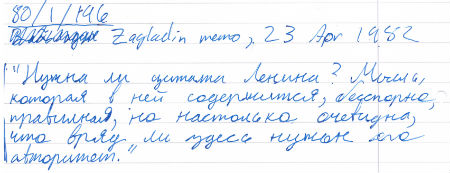 80/1/796
Zagladin memo, 23 Apr 1982
"Нужна ли цитата Ленина? Мысль,
которая в ней содержится, бесспорно,
правильная, но настолько очевидна,
что вряд ли здесь нужен его
авторитет."